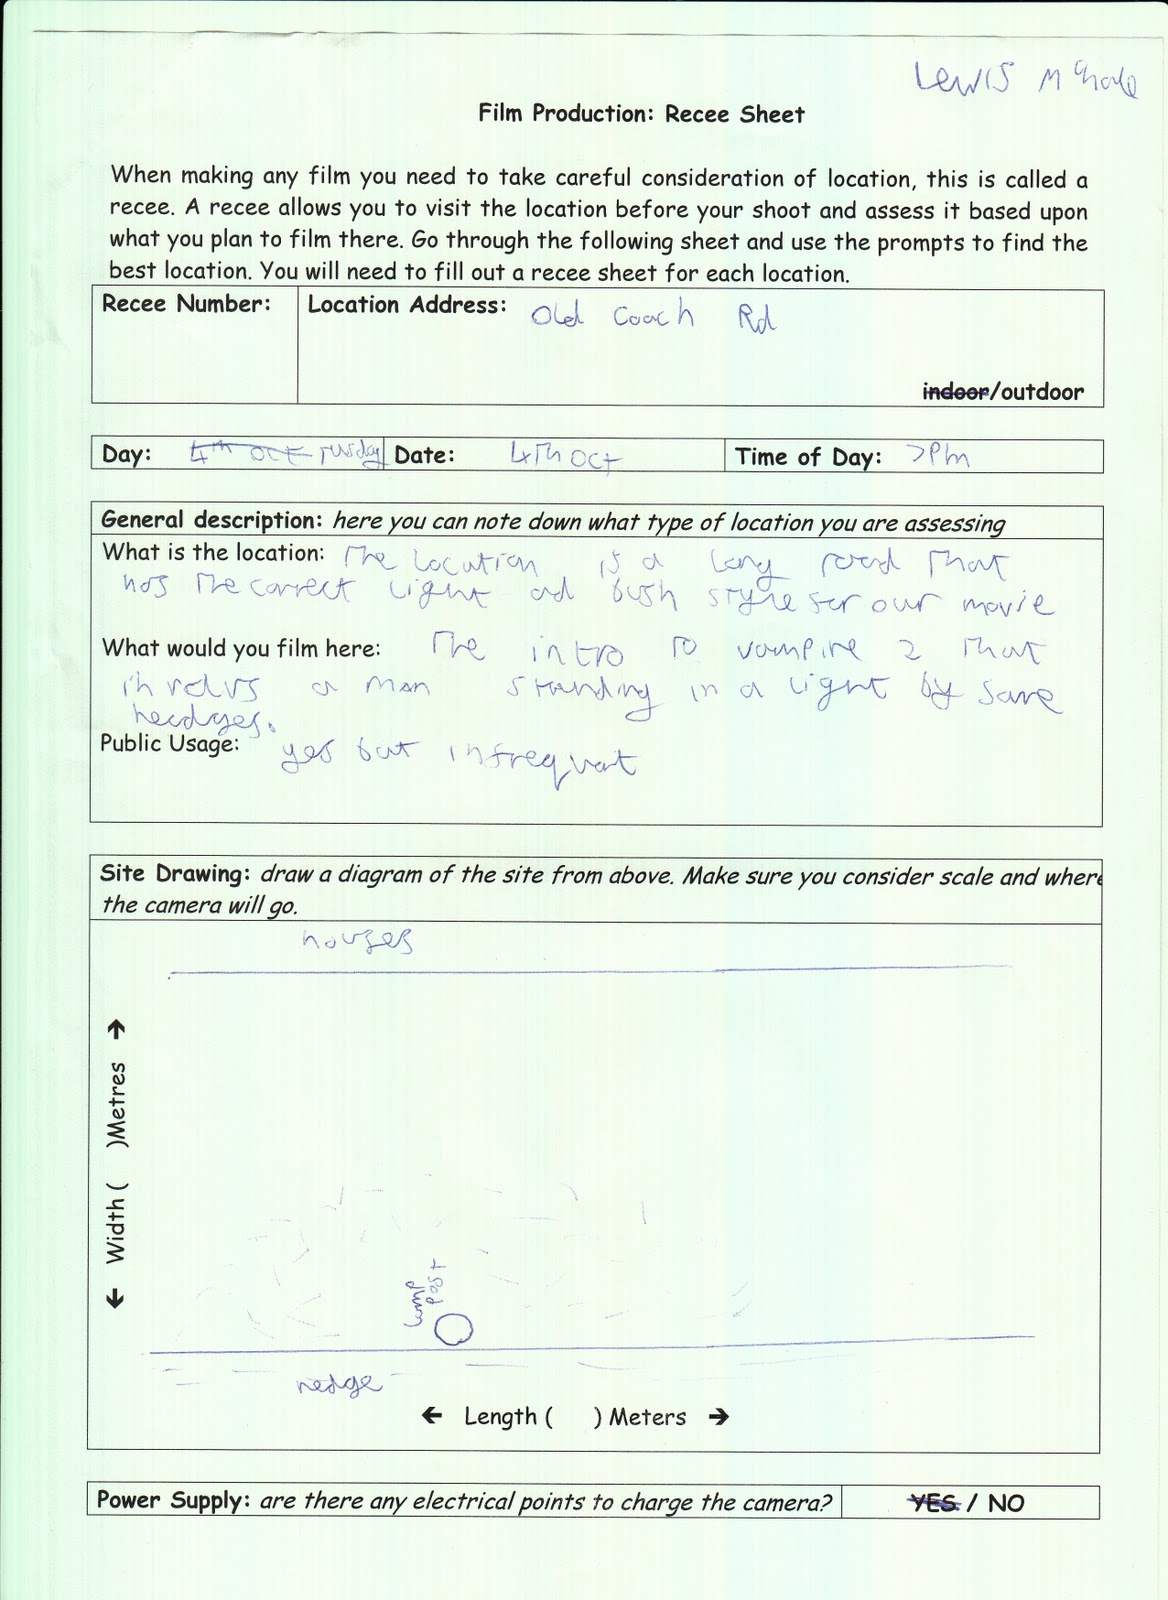 Lewis McHale
Film Production: Recee Sheet
When making any film you need to take careful consideration of location, this is called a
recee. A recee allows you to visit the location before your shoot and assess it based upon
what you plan to film there. Go through the following sheet and use the prompts to find the
best location. You will need to fill out a recee sheet for each location.
Recee Number: Location Address: Old Coach Rd
indoor/outdoor
Day: 4th Oct Tusday Date: 4Th Oct Time of Day: 7Pm
General description: here you can note down what type of location you are assessing
What is the location: The location is a long road That
has The correct light ad bush style for our movie
What would you film here: The intro to vampire 2 that
involvs a man standing in a light by some
hecdges.
Public Usage: yes but infrequent
Site Drawing: draw a diagram of the site from above. Make sure you consider scale and where
the camera will go.
houses
Width ( )Metres
lamp
post
hedge
← Length ( ) Meters →
Power Supply: are there any electrical points to charge the camera? YES / NO